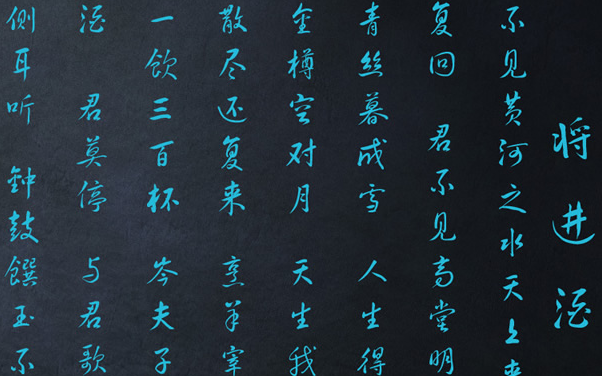 将进酒
不见黄河之水天上来
复回 君不见高堂明
青丝暮成雪 人生得
金樽空对月 天生我
散尽还复来 烹羊宰
一饮三百杯 岑夫子
酒 君莫停 与君歌
侧耳听 钟鼓馔玉不